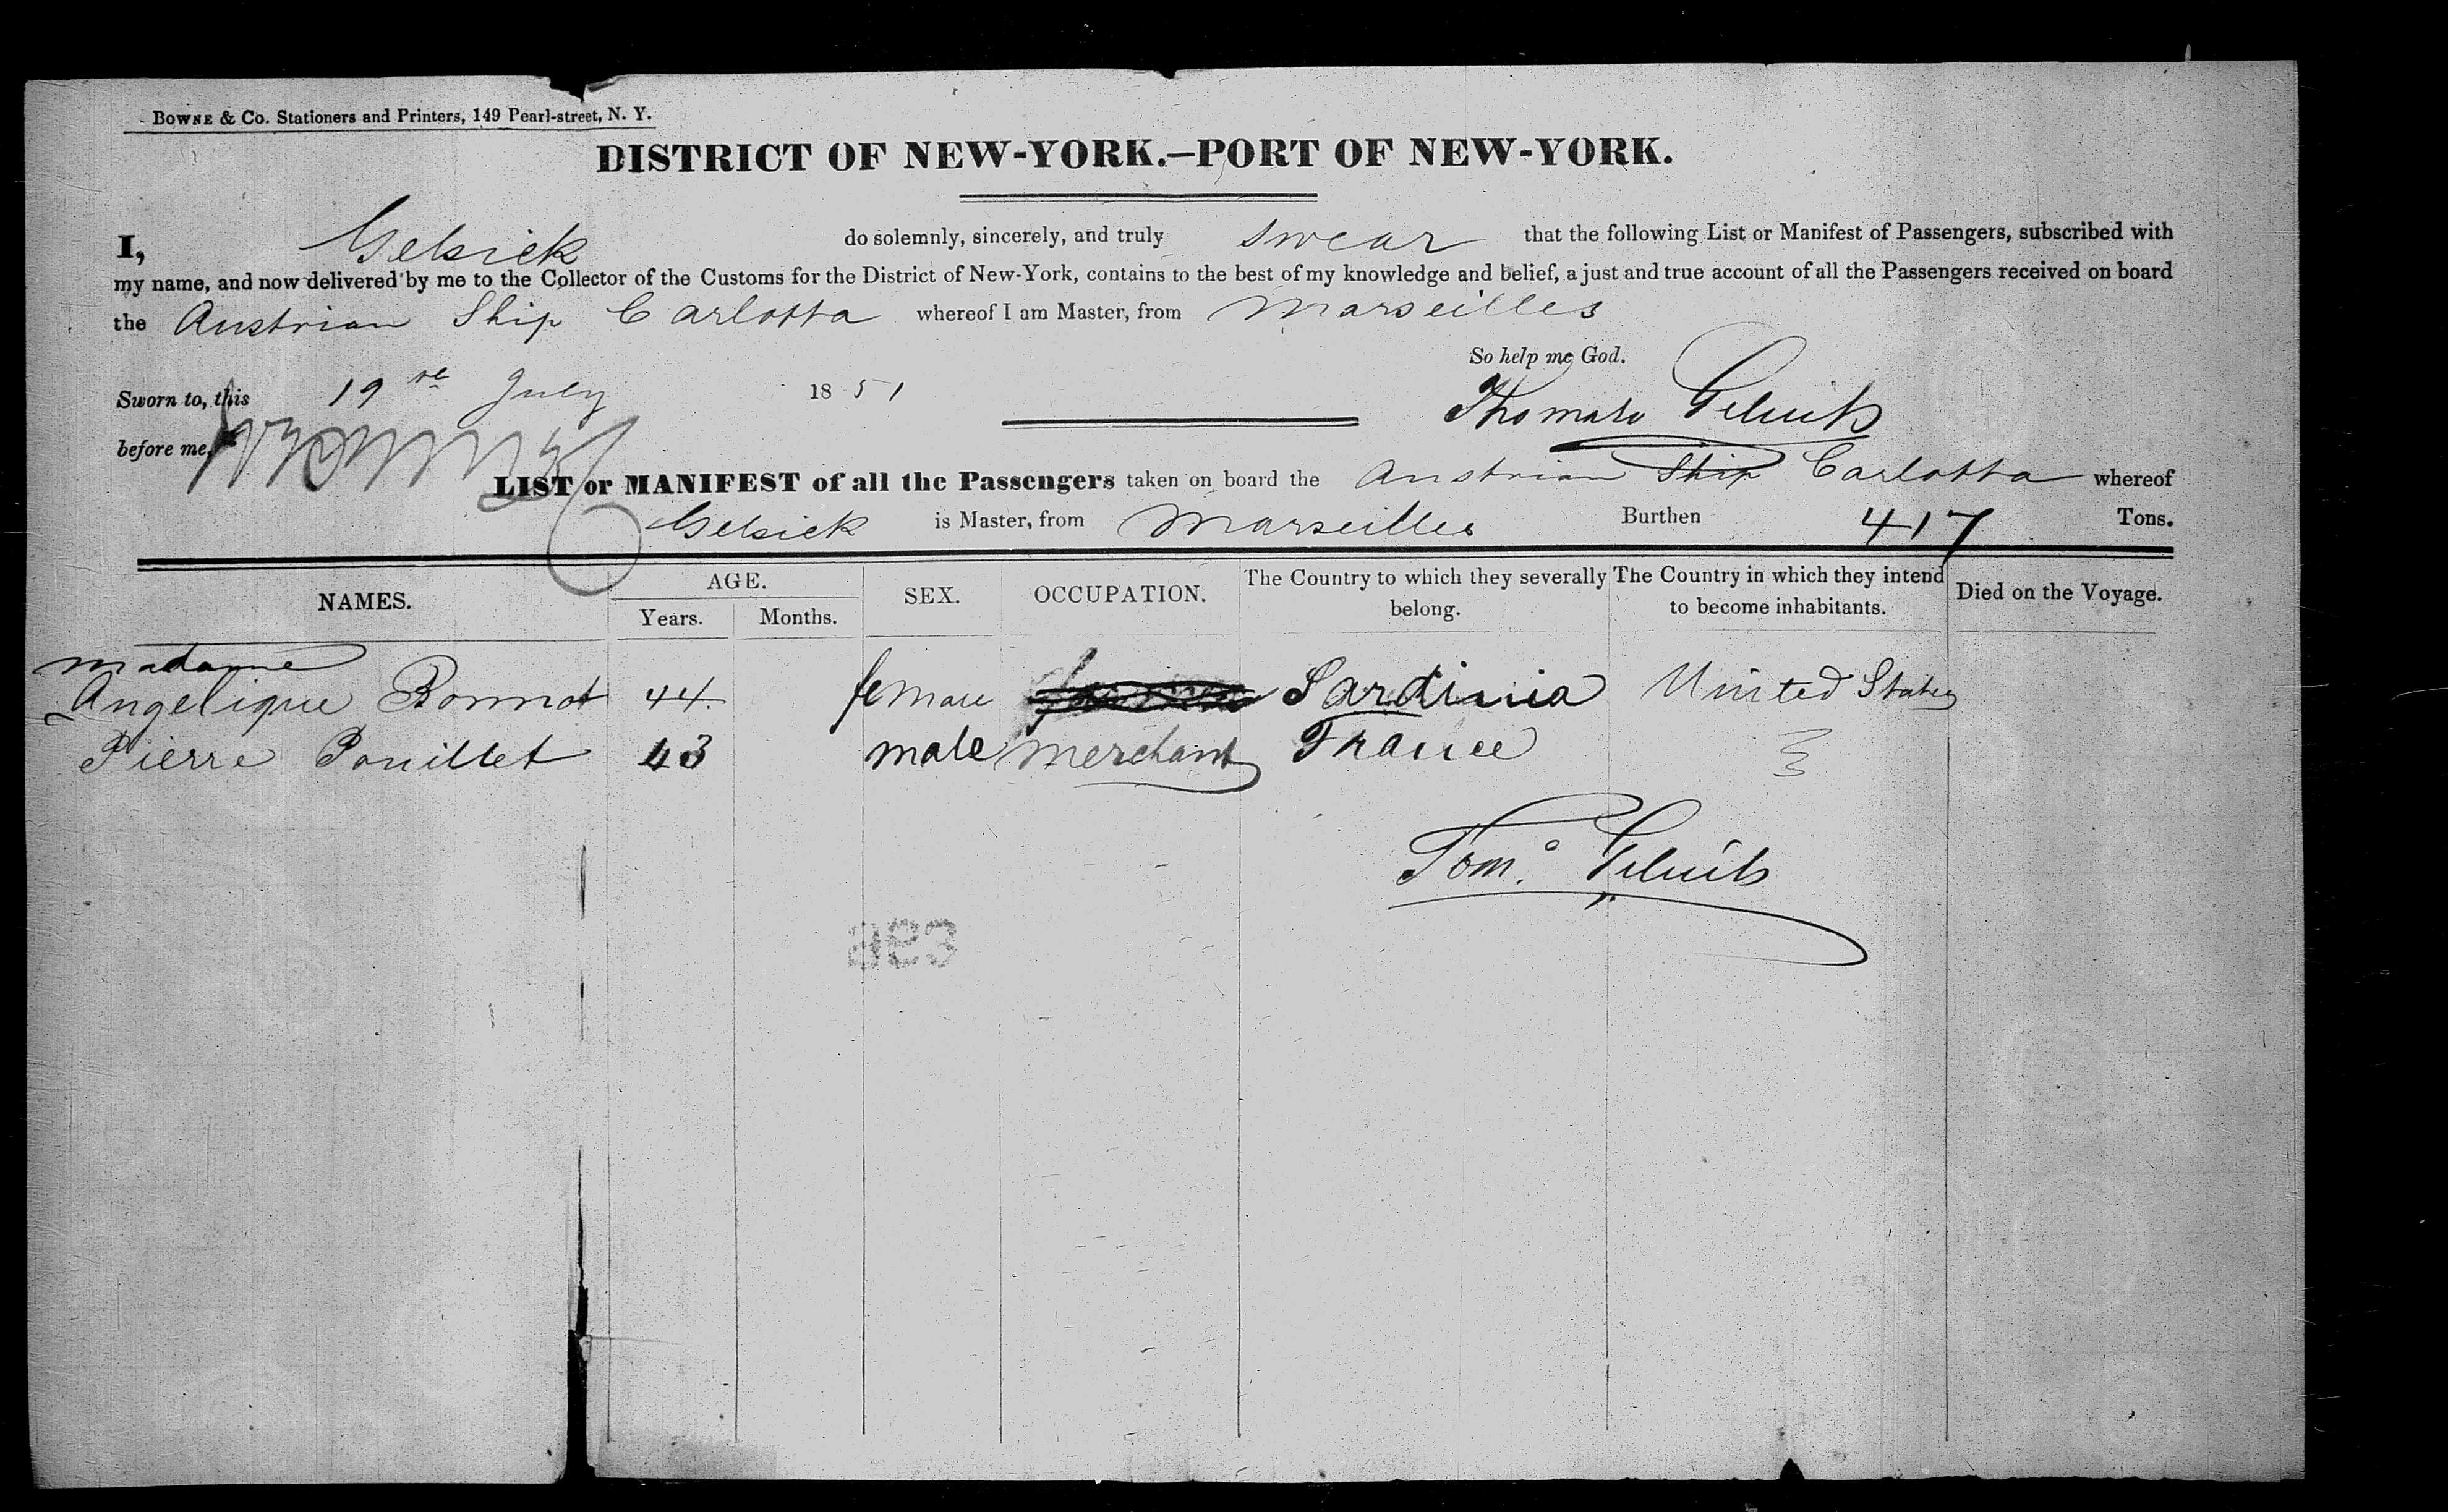 Bowne & Co. Stationers and Printers, 149 Pearl-street, N. Y.
DISTRICT OF NEW-YORK.—PORT OF NEW-YORK.
I, Gelsick do solemnly, sincerely, and truly swear that the following List or Manifest of Passengers, subscribed with
my name, and now delivered by me to the Collector of the Customs for the District of New-York, contains to the best of my knowledge and belief, a just and true account of all the Passengers received on board
the Austrian Ship Carlotta whereof I am Master, from Marseilles
So help me God.
Sworn to, this 19 July 1851
before me,
LIST or MANIFEST of all the Passengers taken on board the Austrian Ship Carlotta whereof
Gelsick is Master, from Marseilles Burthen 417 Tons.
NAMES. AGE. Years. Months. SEX. OCCUPATION. The Country to which they severally belong. The Country in which they intend to become inhabitants. Died on the Voyage.
madame
Angelique Bonnot 44. female Sardinia United States
Pierre Pouillet 43 male merchant France